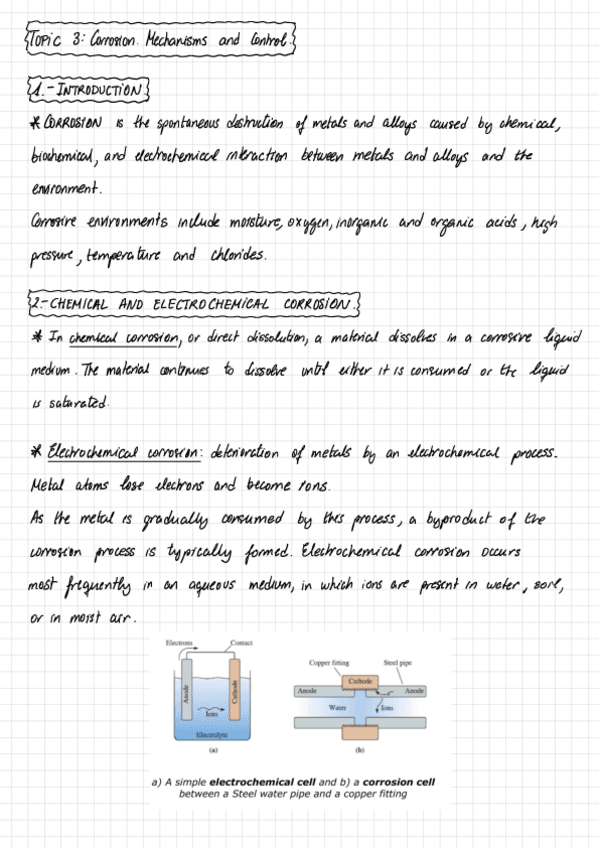 TOPIC 3: Corrosion. Mechanisms and Control.
1.- INTRODUCTION
* CORROSION is the spontaneous destruction of metals and alloys caused by chemical,
biochemical, and electrochemical interaction between metals and alloys and the
environment.
Corrosive environments include moisture, oxygen, inorganic and organic acids, high
pressure, temperature and chlorides.
2.- CHEMICAL AND ELECTROCHEMICAL CORROSION.
* In chemical corrosion, or direct dissolution, a material dissolves in a corrosive liquid
medium. The material continues to dissolve until either it is consumed or the liquid
is saturated.
* Electrochemical corrosion: deterioration of metals by an electrochemical process.
Metal atoms lose electrons and become ions.
As the metal is gradually consumed by this process, a byproduct of the
corrosion process is typically formed. Electrochemical corrosion occurs
most frequently in an aqueous medium, in which ions are present in water, soil,
or in moist air.
Electrons Contact
Anode
Cathode
Ions
Electrolyte
(a)
Copper fitting Steel pipe
Cathode
Anode Anode
Water Ions
(b)
a) A simple electrochemical cell and b) a corrosion cell
between a Steel water pipe and a copper fitting